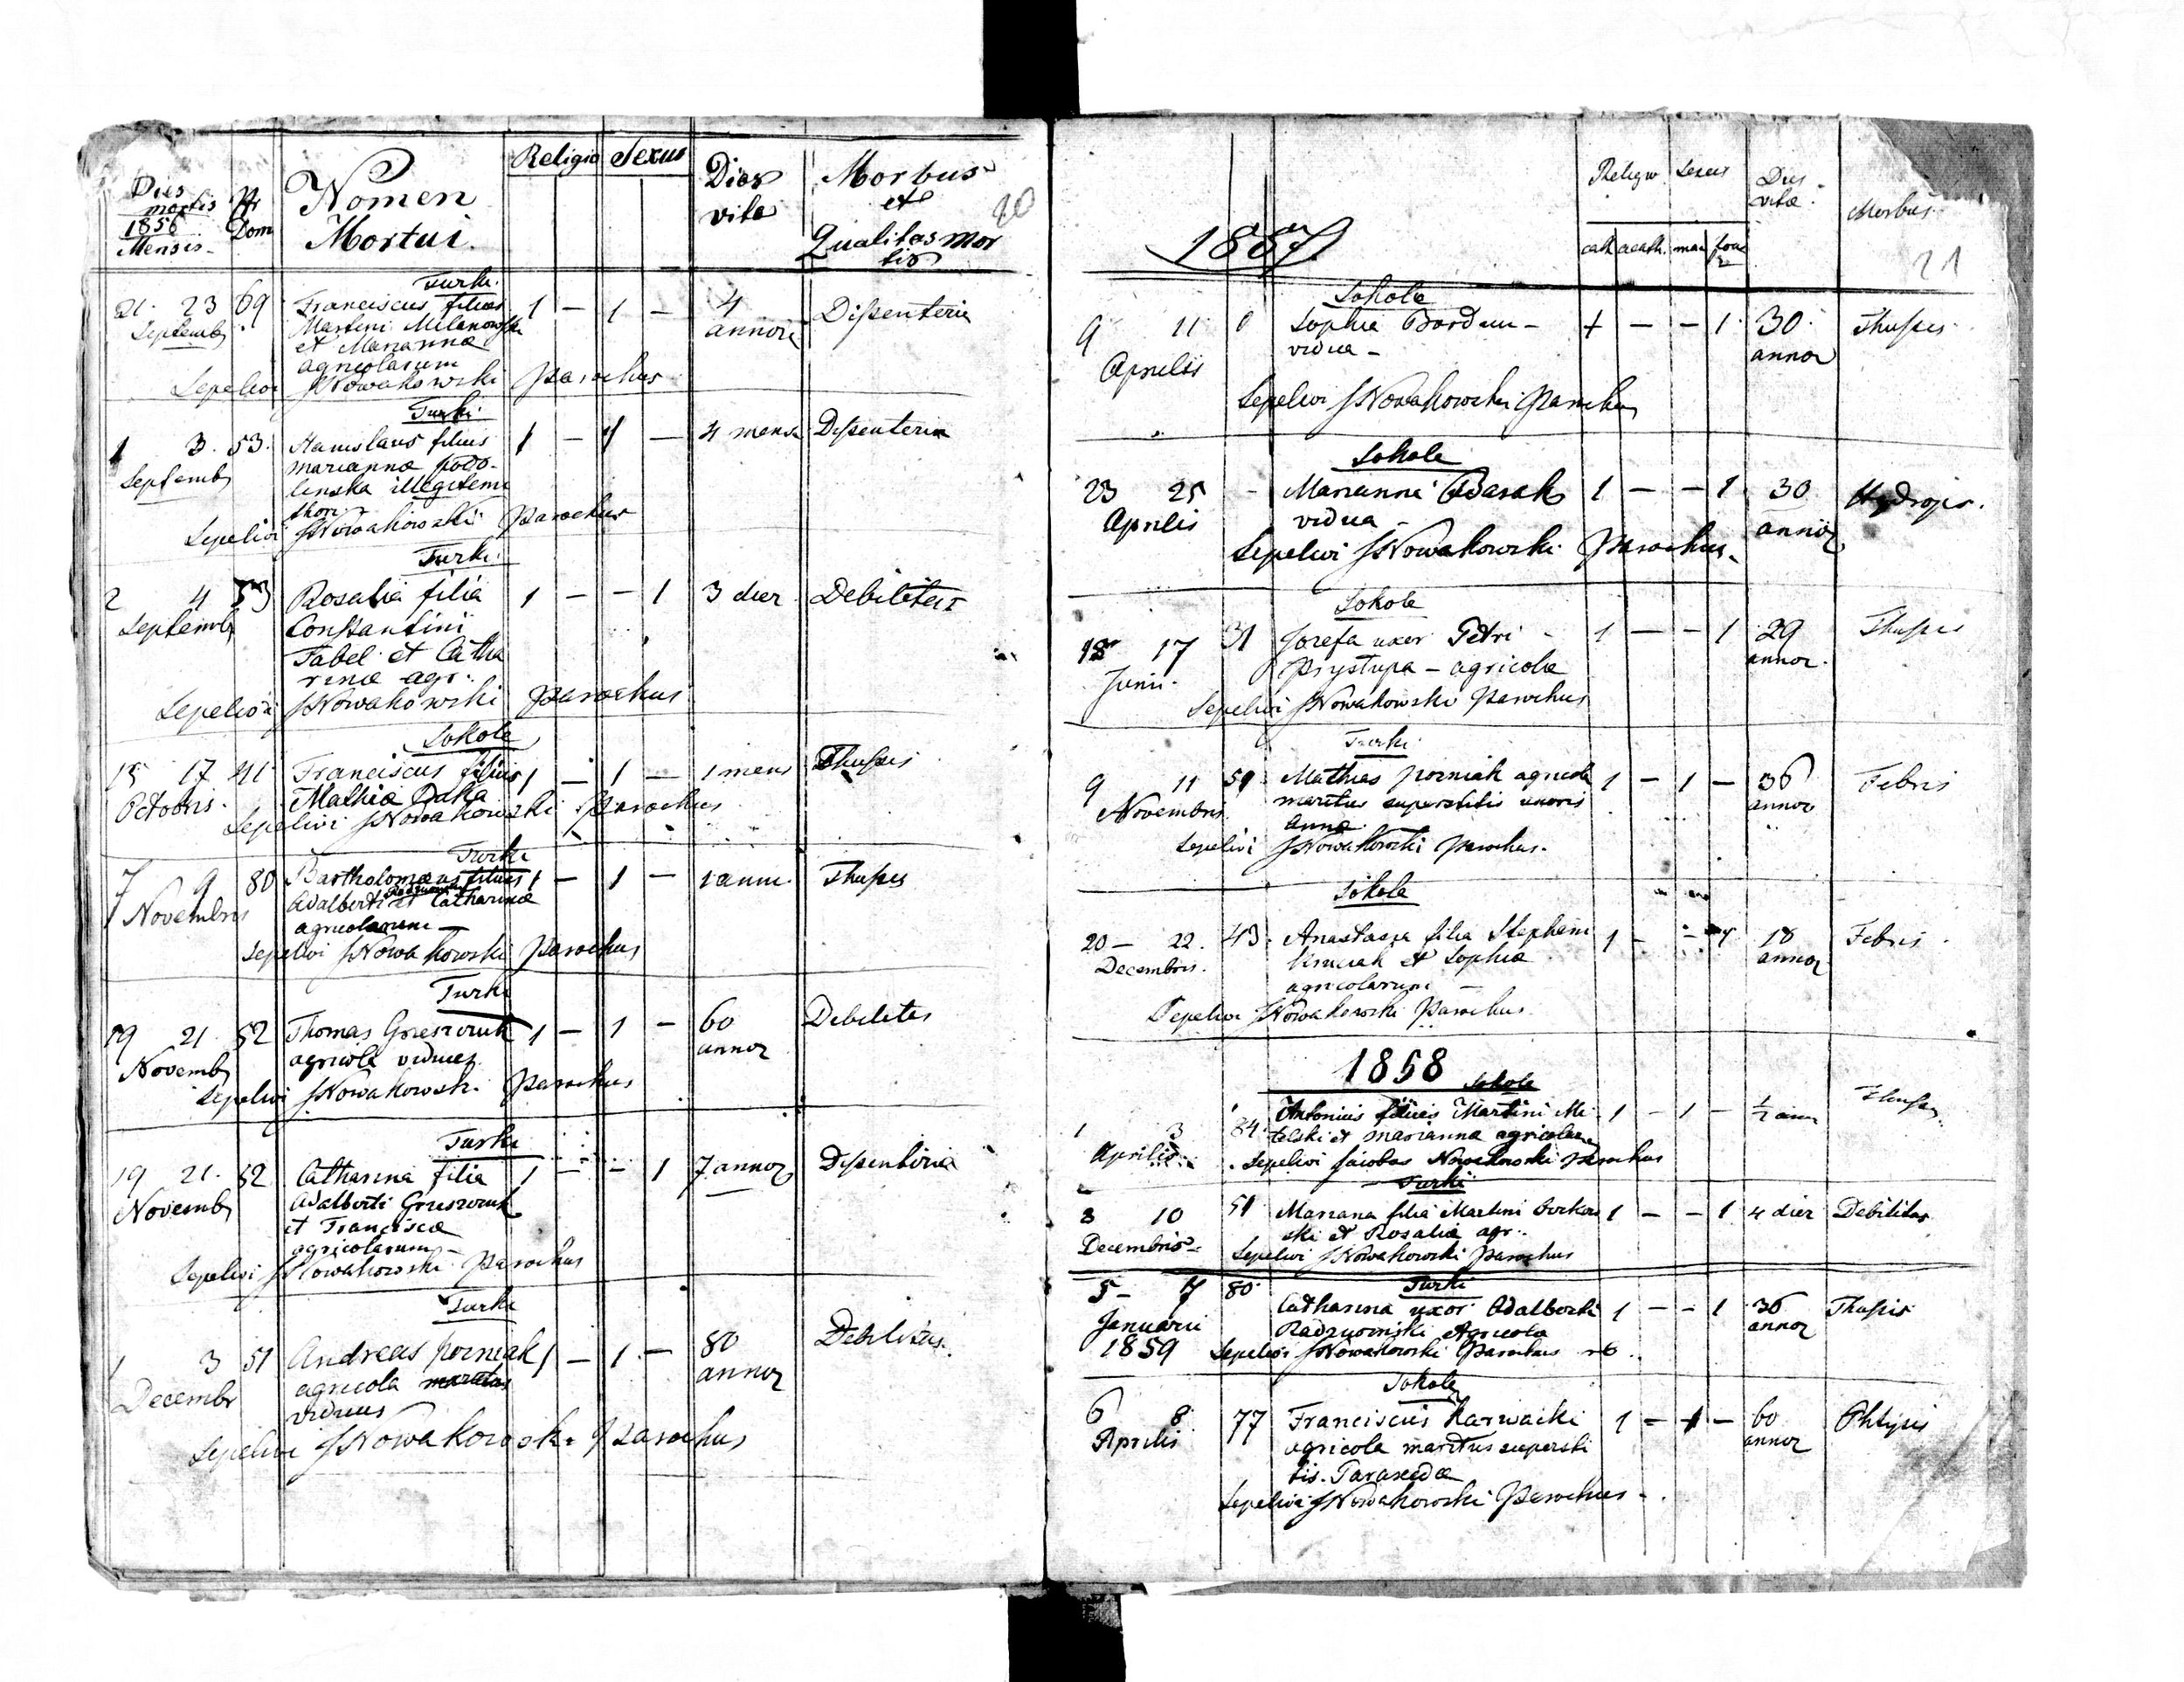 Dies mortis 1856 Mensis
Nr Dom
Nomen Mortui
Religio Sexus
Dies vitae
Morbus et Qualitas mortis
20
Turki
21 23 69 Franciscus filius 1 – 1 – 4 Dissenteria
Septemb Martini Milanowski annor
et Mariannae
agricolarum
Sepelivi JNowakowski Parochus
Turki
1 3 53 Stanislaus filius 1 – 1 – 4 mens Dissenteria
Septemb mariannae podo-
linska illegitemi
thori
Sepelivi JNowakowski Parochus
Turki
2 4 53 Rosalia filia 1 – – 1 3 dier Debilitas
Septemb Constantini
Tabel et Catha
rinae agr.
Sepelivi JNowakowski Parochus
Sokole
15 17 41 Franciscus filius 1 – 1 – 1 mens Thussis
Octobris Mathiae
Sepelivi JNowakowski Parochus
Turki
7 9 80 Bartholomaeus filius 1 – 1 – 1 ann. Thussis
Novembris Adalberti et Catharinae
agricolarum –
Sepelivi JNowakowski Parochus
Turki
19 21 52 Thomas 1 – 1 – 60 Debilitas
Novemb agricola viduus annor
Sepelivi JNowakowski Parochus
Turki
19 21 52 Catharina filia 1 – – 1 7 annor Dissenteria
Novemb Adalberti
et Franciscae
agricolarum –
Sepelivi JNowakowski Parochus
Turki
1 3 51 Andreas porniak 1 – 1 – 80 Debilitas
Decembr agricola maritus annor
viduus
Sepelivi JNowakowski Parochus
1857
Religio Sexus
cath acath. mas foem
Dies vitae
Morbus
21
Sokole
9 11 Sophia Bordun – 1 – – 1 30 Thussis
Aprilis vidua – annor
Sepelivi JNowakowski Parochus
Sokole
23 25 – Marianna 1 – – 1 30 Hydrops.
Aprilis vidua – annor
Sepelivi JNowakowski Parochus
Sokole
17 31 Jozefa uxor Petri – 1 – – 1 29 Thussis
Junii Prystupa – agricolae annor
Sepelivi JNowakowski Parochus
Turki
9 11 51 Mathias porniak agricola 1 – 1 – 36 Febris
Novembris maritus superstitis uxoris annor
Annae
Sepelivi JNowakowski Parochus.
Sokole
20 – 22. 43. Anastasia filia Stephani 1 – – 1 18 Febris
Decembris. et Sophiae annor
agricolarum –
Sepelivi JNowakowski Parochus
1858
Sokole
1 3 84 Antonius filius Martini Me- 1 – 1 – ½ ann Thussis
Aprilis telski et marianna agricolarum
Sepelivi Jacobus Nowakowski parochus
Turki
8 10 51 Mariana filia Martini 1 – – 1 4 dier Debilitas
Decembris ski et Rosaliae agr.
Sepelivi JNowakowski Parochus
Turki
5 – 7 80 Catharina uxor Adalberti 1 – – 1 36 Thussis
Januarii Radzuominski Agricola annor
1859 Sepelivi JNowakowski Parochus
Sokole
6 8 77 Franciscus Karwacki 1 – 1 – 60 Phtysis
Aprilis agricola maritus supersti annor
tis. Paraxedae
Sepelivi JNowakowski Parochus –